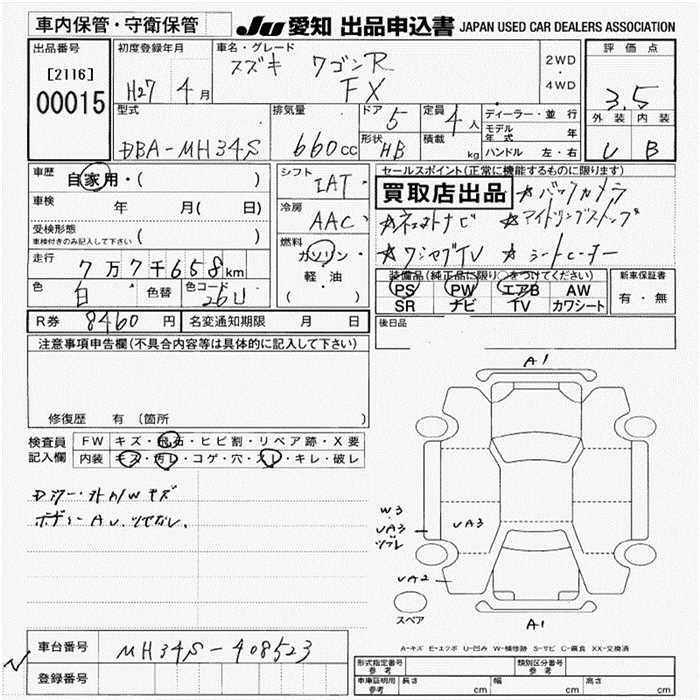 車内保管・守衛保管
JU 愛知 出品申込書 JAPAN USED CAR DEALERS ASSOCIATION
出品番号
[2116]
00015
初度登録年月
H27 4月
車名・グレード
スズキ ワゴンR
FX
2WD
・
4WD
評価点
3.5
外装 内装
U B
型式
DBA-MH34S
排気量
660cc
ドア
5
形状
HB
定員
4人
積載
kg
ディーラー・並行
モデル年式 年
ハンドル 左・右
車歴
自家用・( )
車検
年 月( 日)
受検形態
車検付きのみ記入して下さい ( )
走行
7万7千658km
色
白
色替
色コード
26U
シフト
IAT
冷房
AAC
燃料
ガソリン・
軽・油
( )
セールスポイント(正常に機能するものに限ります)
買取店出品 ☆バックカメラ
☆アイドリングストップ
☆ワンセグTV ☆シートヒーター
装備品(純正品に限り○をつけてください)
PS PW エアB AW
SR ナビ TV カワシート
新車保証書
有・無
R券 8460円
名変通知期限 月 日
後日品
注意事項申告欄(不具合内容等は具体的に記入して下さい)
修復歴 有 〔箇所 〕
検査員
記入欄
FW キズ・飛石・ヒビ割・リペア跡・X要
内装 キズ・汚レ・コゲ・穴・スレ・キレ・破レ
A1
W3
UA3
UA3
UA2
スペア
A1
A-キズ E-エクボ U-凹み W-補修跡 S-サビ C-腐食 XX-交換済
車台番号 MH34S-408523
登録番号
形式指定番号
参考
類別区分番号
参考
車庫証明用
参考
長さ cm
幅 cm
高さ cm